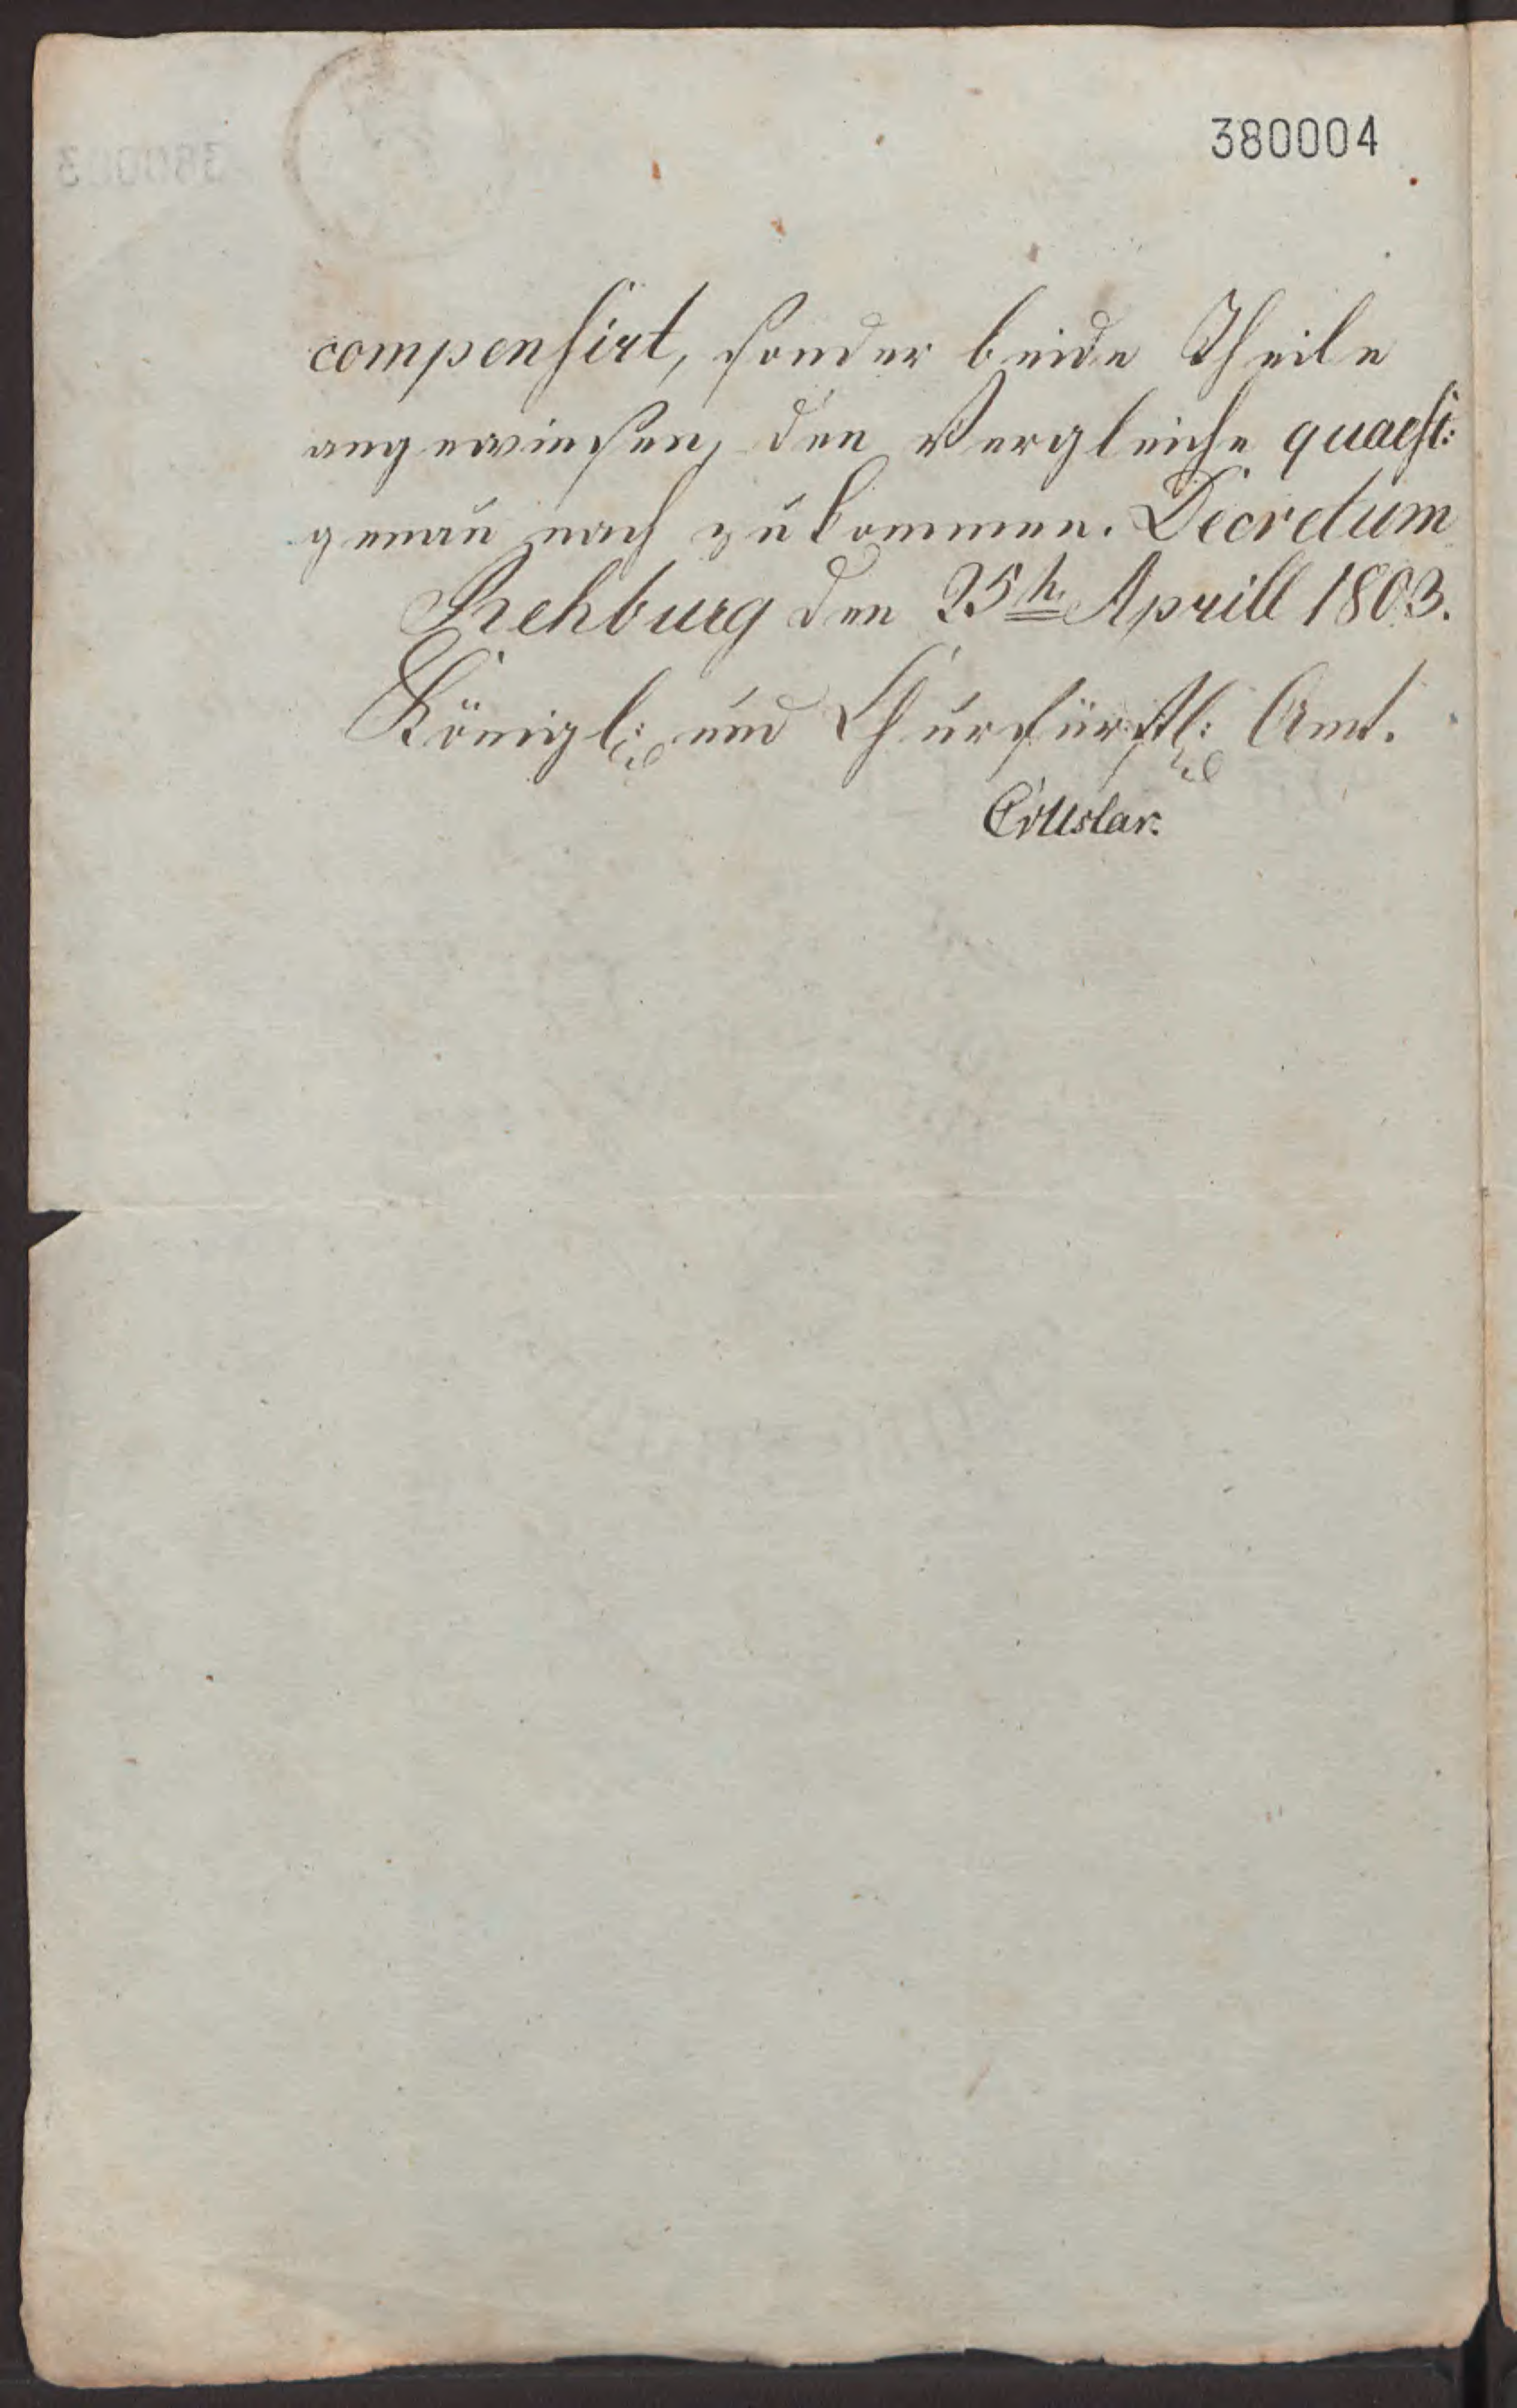 380004
compensirt, sonder beide Theile
angewiesen, den Vergleiche quaest:
genau nach zu kommen. Decretum
Rehburg den 25th Aprill 1803.
Königl: und Churfürstl: Amt.